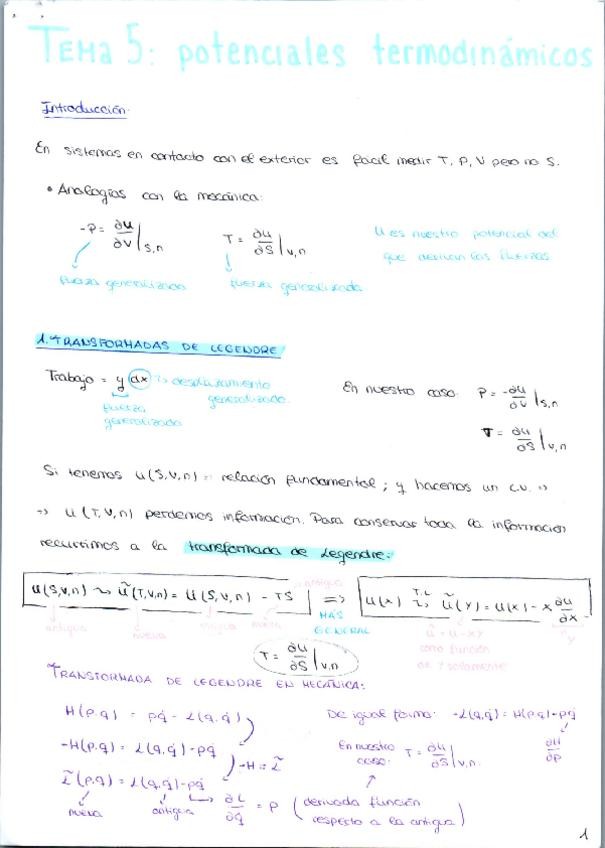 TEMA 5: potenciales termodinámicos
Introducción.
En sistemas en contacto con el exterior es fácil medir T, P, V pero no S.
• Analogías con la mecánica:
-P = ∂u/∂v|S,n T = ∂u/∂S|v,n U es nuestro potencial del
que derivan las fuerzas
fuerza generalizada fuerza generalizada
1. TRANSFORMADAS DE LEGENDRE
Trabajo = y dx → desplazamiento generalizado
fuerza generalizada
En nuestro caso: P = -∂u/∂v|S,n
T = ∂u/∂S|v,n
Si tenemos u(S,v,n) = relación fundamental; y hacemos un c.v. ⇒
⇒ u(T,v,n) perdemos información. Para conservar toda la información
recurrimos a la transformada de Legendre:
u(S,v,n) ⤳ ũ(T,v,n) = u(S,v,n) - TS ⇒ u(x) T.L ⤳ ũ(y) = u(x) - x ∂u/∂x
antigua nueva antigua nueva antigua
MÁS GENERAL
y
ũ = u - xy
como función
de y solamente
T = ∂u/∂S|v,n
TRANSFORMADA DE LEGENDRE EN MECÁNICA:
H(p,q) = pq̇ - L(q,q̇)
-H(p,q) = L(q,q̇) - pq̇
-H = L̃
L̃(p,q) = L(q,q̇) - pq̇
nueva antigua ∂L/∂q̇ = p (derivada función
respecto a la antigua)
De igual forma: -L(q,q̇) = H(p,q) - pq̇
∂H/∂p
En nuestro caso: T = ∂u/∂S|v,n
1